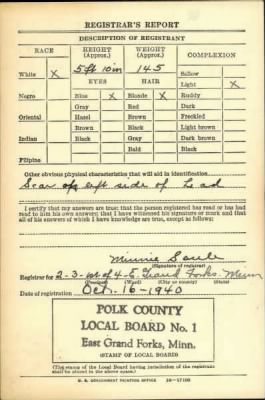 REGISTRAR'S REPORT
DESCRIPTION OF REGISTRANT
RACE HEIGHT (Approx.) WEIGHT (Approx.) COMPLEXION
5 ft 10 in 145
White X EYES HAIR Sallow
Light X
Negro Blue X Blonde X Ruddy
Gray Red Dark
Oriental Hazel Brown Freckled
Brown Black Light brown
Indian Black Gray Dark brown
Bald Black
Filipino
Other obvious physical characteristics that will aid in identification
Scar on left side of head
I certify that my answers are true; that the person registered has read or has had
read to him his own answers; that I have witnessed his signature or mark and that
all of his answers of which I have knowledge are true, except as follows:
Minnie
(Signature of registrar)
Registrar for 2-3- of 4-E. Grand Forks. Minn
(Precinct) (Ward) (City or county) (State)
Date of registration Oct. 16-1940
POLK COUNTY
LOCAL BOARD No. 1
East Grand Forks, Minn.
(STAMP OF LOCAL BOARD)
(The stamp of the Local Board having jurisdiction of the registrant
shall be placed in the above space.)
U. S. GOVERNMENT PRINTING OFFICE 16—17105